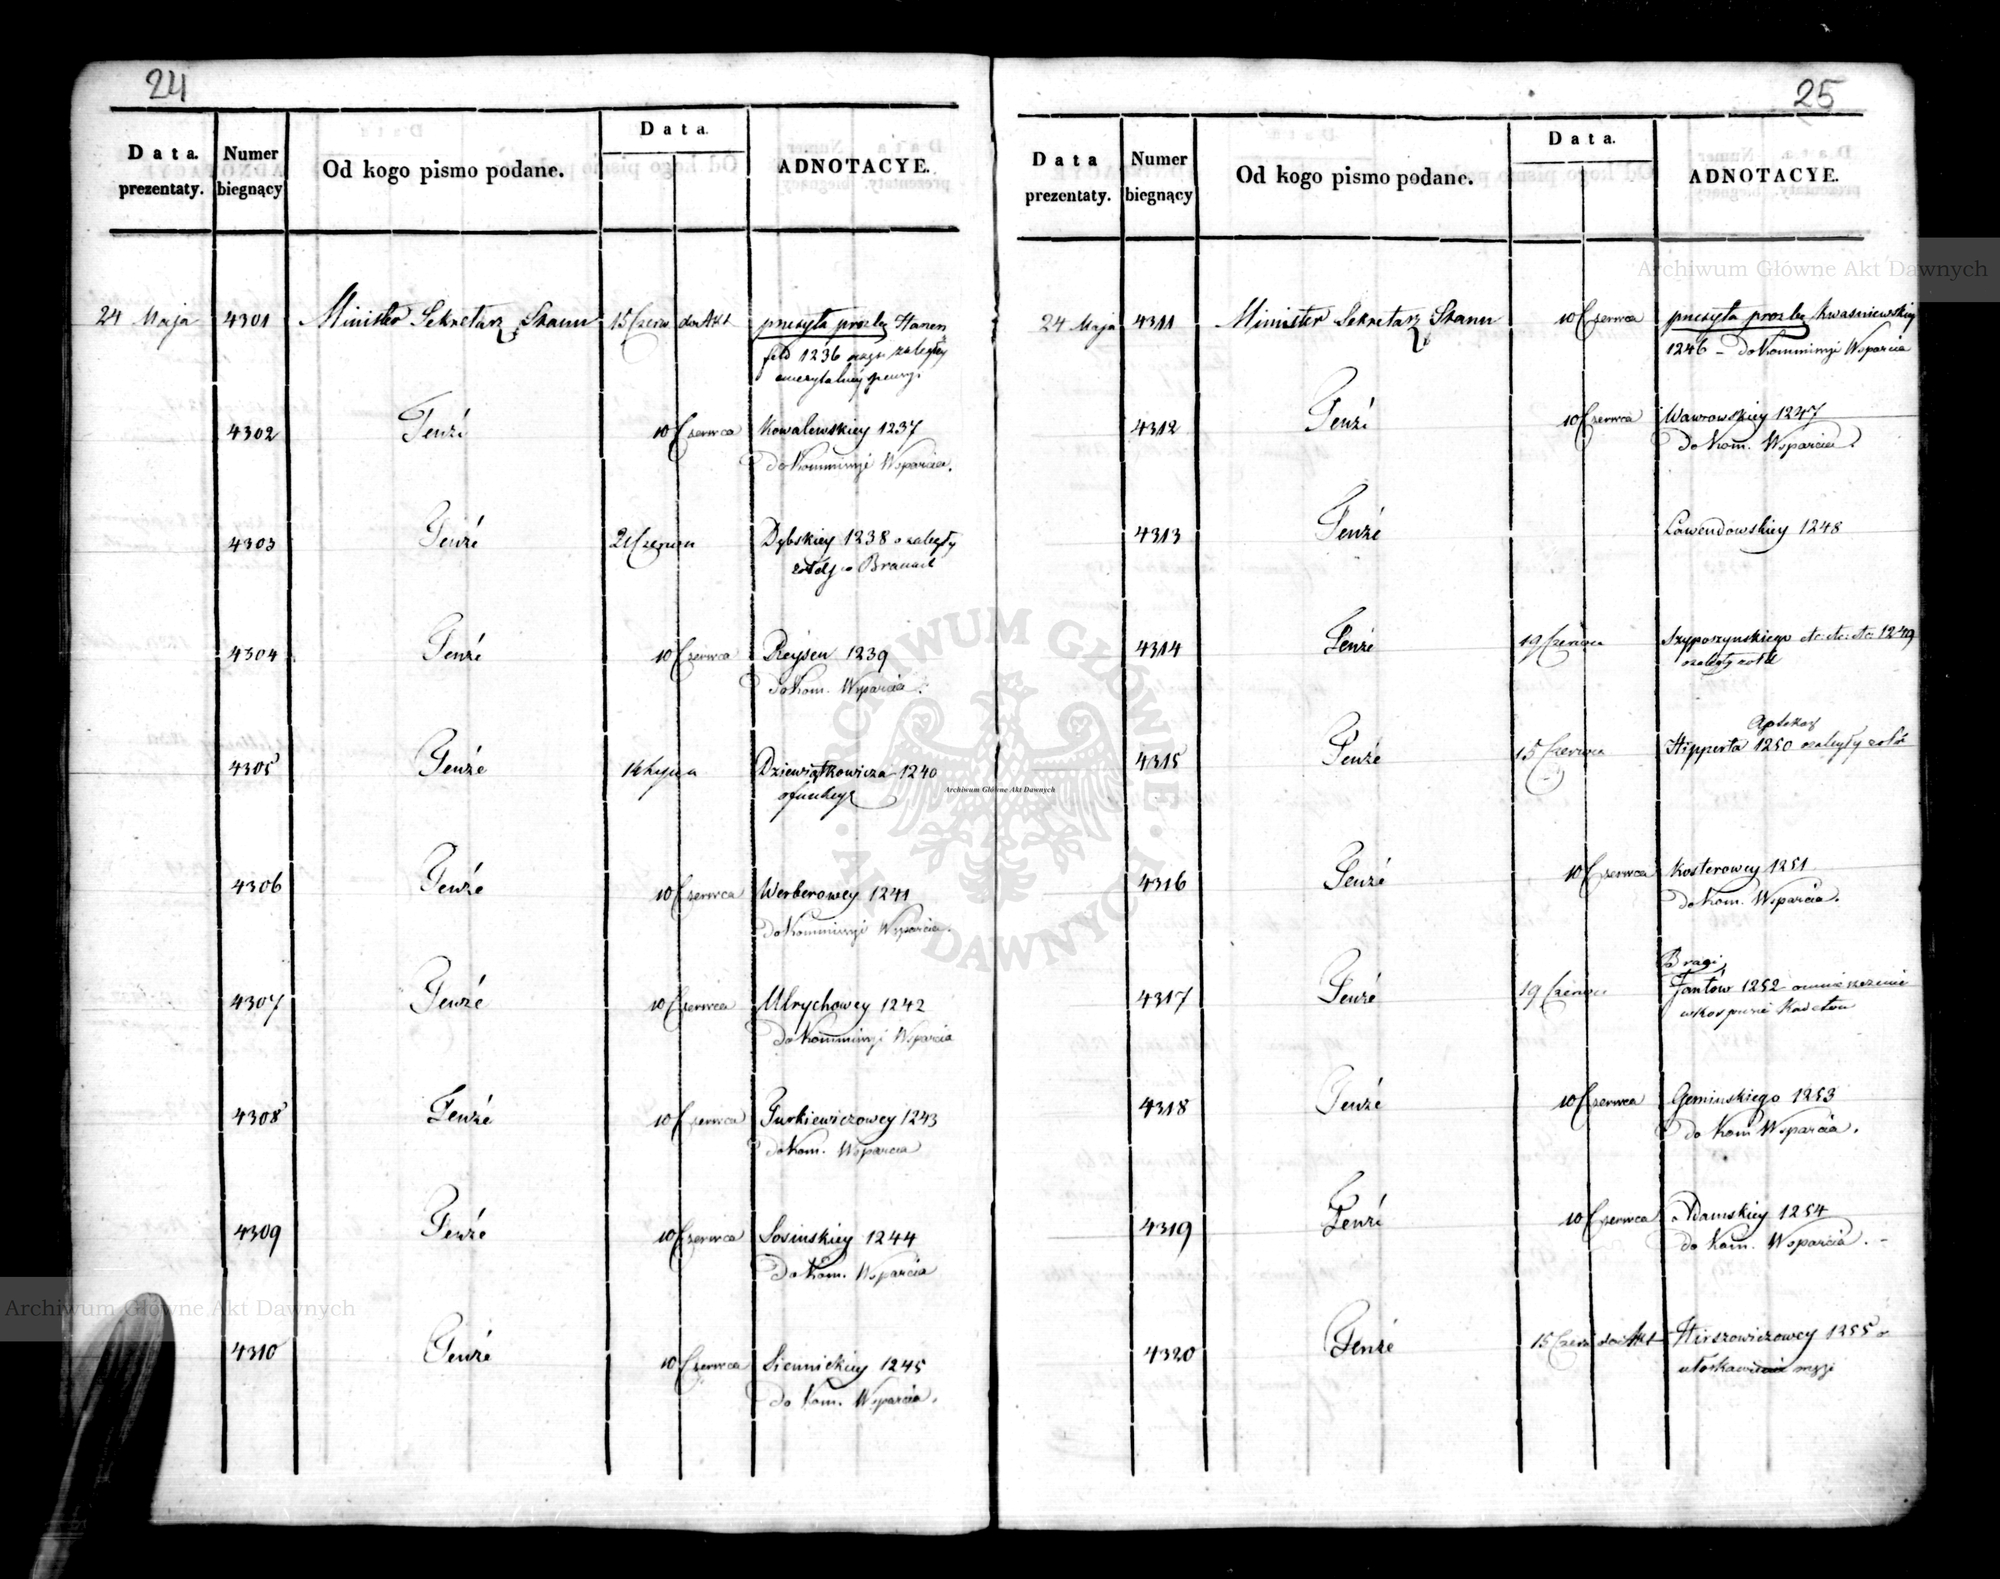 24
Data.
prezentaty.
Numer
biegnący
Od kogo pismo podane.
Data.
ADNOTACYE.
24 Maja 4301 Minister Sekretarz Stanu 15 Czerw. do Akt przesyła prozbę Hanen
feld 1236 zaległy
emerytalney
4302 Tenże 10 Czerwca Kowalewskiey 1237
do Kommissyi Wsparcia.
4303 Tenże 2 Czerwca Dybskiey 1238 o zaległy
żołd
4304 Tenże 10 Czerwca Dreysen 1239
do Kom. Wsparcia.
4305 Tenże 14 Dziewiątkowicza 1240
4306 Tenże 10 Czerwca Werberowey 1241
do Kommissyi Wsparcia.
4307 Tenże 10 Czerwca Ulrychowey 1242
do Kommissyi Wsparcia
4308 Tenże 10 Czerwca Turkiewiczowey 1243
do Kom. Wsparcia
4309 Tenże 10 Czerwca Sosinskiey 1244
do Kom. Wsparcia
4310 Tenże 10 Czerwca Siennickiey 1245
do Kom. Wsparcia.
25
Data
prezentaty.
Numer
biegnący
Od kogo pismo podane.
Data.
ADNOTACYE.
24 Maja 4311 Minister Sekretarz Stanu 10 Czerwca przesyła prozbę Kwasniewskiey
1246 – do Kommissyi Wsparcia
4312 Tenże 10 Czerwca Wawrowskiey 1247
do Kom. Wsparcia.
4313 Tenże Lawendowskiey 1248
4314 Tenże 19 Czerwca Szyposzynskiego 1249
o zaległy żołd
Aptekarz
4315 Tenże 15 Czerwca Hipperta 1250 o zaległy żołd
4316 Tenże 10 Czerwca Kosterowey 1251
do Kom. Wsparcia.
4317 Tenże 19 Czerwca Jantów 1252 o umieszczenie
w korpusie Kadetów
4318 Tenże 10 Czerwca Geminskiego 1253
do Kom Wsparcia.
4319 Tenże 10 Czerwca Adamskiey 1254
do Kom. Wsparcia. –
4320 Tenże 15 Czerw do Akt Hirszowiczowey 1255 o
ułaskawienie męża
Archiwum Główne Akt Dawnych
Archiwum Główne Akt Dawnych
Archiwum Główne Akt Dawnych
ARCHIWUM GŁÓWNE AKT DAWNYCH